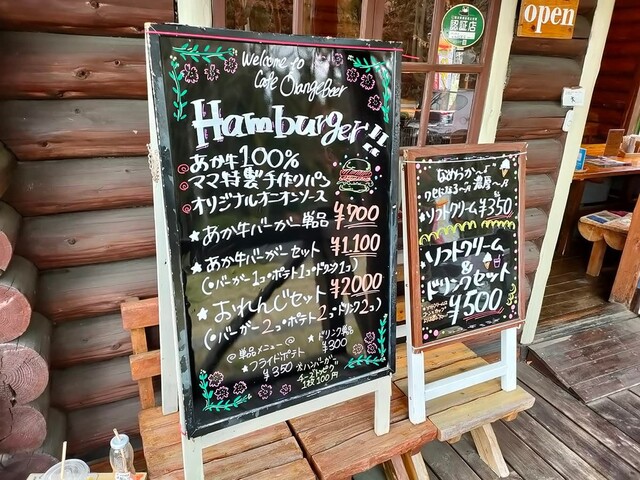 Welcome to
Cafe OrangeBeer
Hamburger!!
あか牛100%
ママ特製手作りパン
オリジナルオニオンソース
★あか牛バーガー単品 ¥700
★あか牛バーガーセット ¥1,100
(バーガー1コ・ポテト1コ・ドリンク1コ)
★おれんじセット ¥2000
(・バーガー2コ・ポテト2コ・ドリンク2コ)
@単品メニュー@
★ドリンク単品
¥300
★フライドポテト
¥350
※ハンバーガー
チーズトッピング
1枚100円
open
認証店
なめらか〜♪
クセになる〜♪濃厚〜♪
★ソフトクリーム¥350
★ソフトクリーム
&
ドリンクセット
¥500